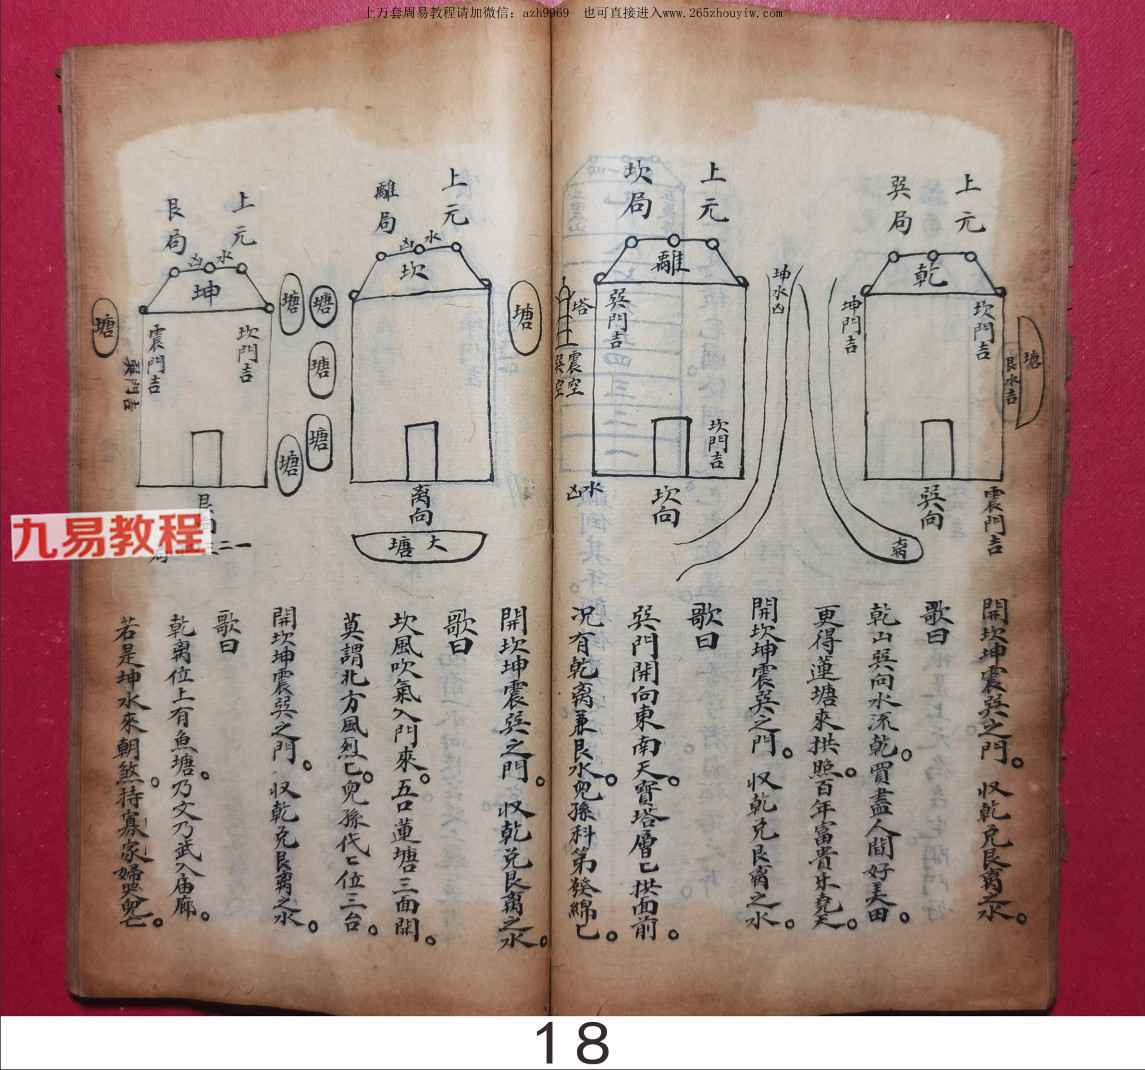 上万套周易教程请加微信：azh9969　也可直接进入www.265zhouyiw.com
上元
巽局
乾
坤門吉
坎門吉
艮水吉
塘
巽向
震門吉
開坎坤震巽之門。収乾兌艮离之水。
歌曰
乾山巽向水流乾。買盡人間好美田。
更得蓮塘來拱照。百年富貴乐堯天。
上元
坎局
離
坤水凶
塔
巽門吉
震空
巽空
坎門吉
坎向
水凶
開坎坤震巽之門。収乾兌艮离之水。
歌曰
巽門開向東南天。寶塔層匕拱面前。
况有乾离兼艮水。兒孫科第發綿匕。
上元
離局
水凶
坎
塘
塘
塘
塘
离向
大塘
開坎坤震巽之門。収乾兌艮离之水。
歌曰
坎風吹氣入門來。五口蓮塘三面開。
莫謂北方風烈匕。兒孫代匕位三台。
上元
艮局
水凶
坤
塘
塘
塘
坎門吉
震門吉
巽門吉
艮向
一二三
局
開坎坤震巽之門。収乾兌艮离之水。
歌曰
乾离位上有魚塘。乃文乃武入庙廊。
若是坤水來朝煞。持寡家婦哭兒亡。
九易教程
18